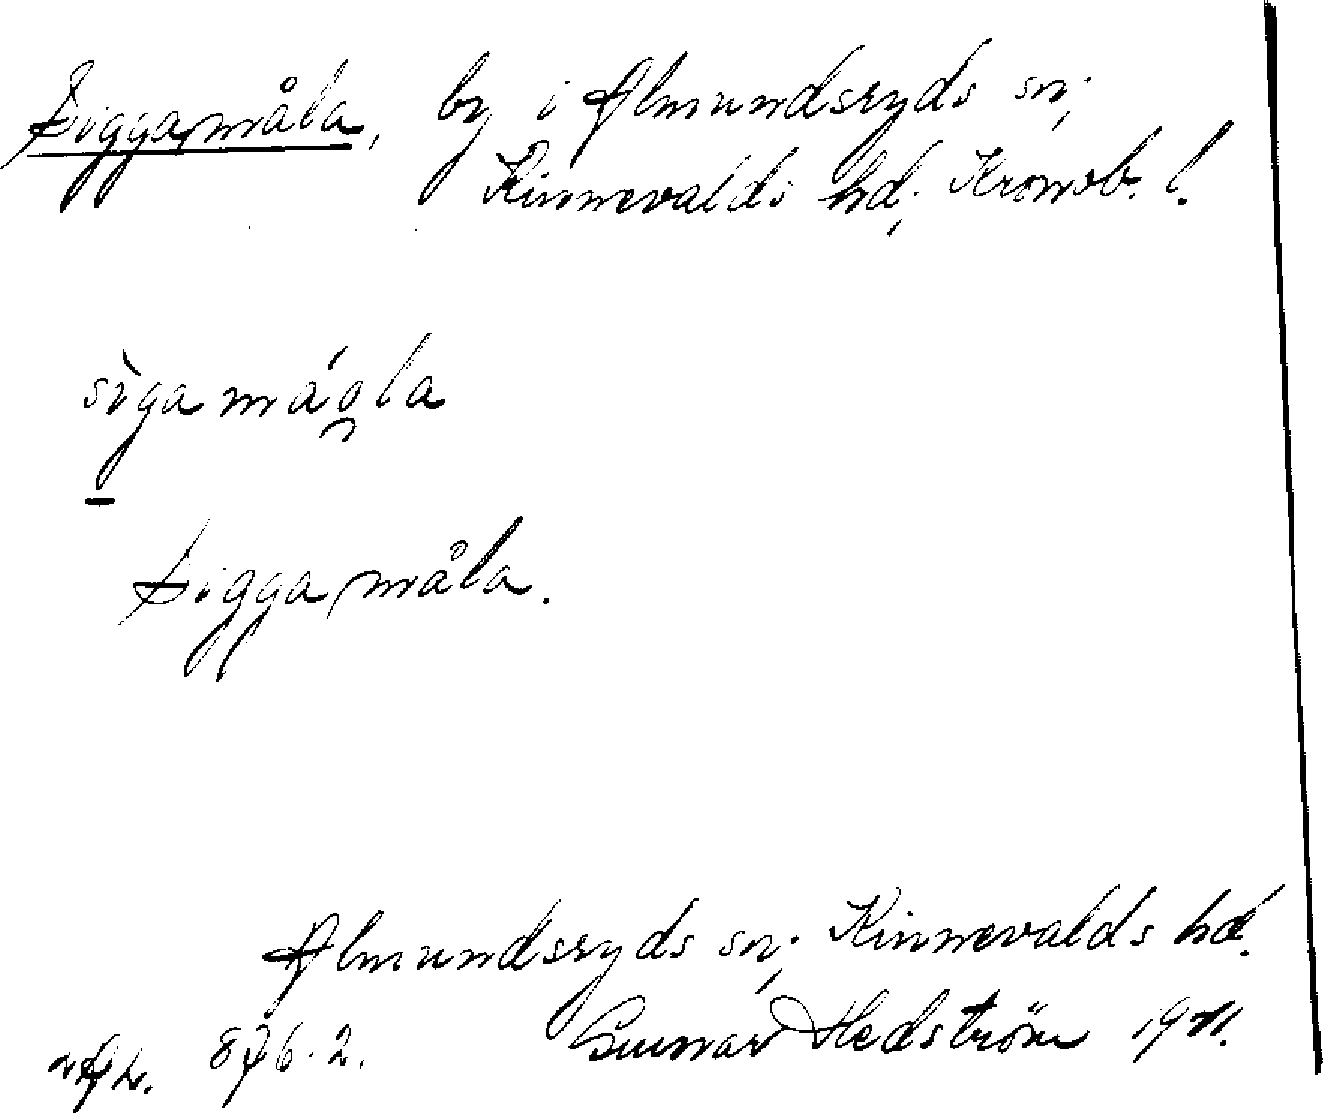 Siggamåla, by i Almundsryds sn,
Kinnevalds hd, Kronob. l.
sìgamáola
Siggamåla.
Almundsryds sn, Kinnevalds hd.
Gunnar Hedström